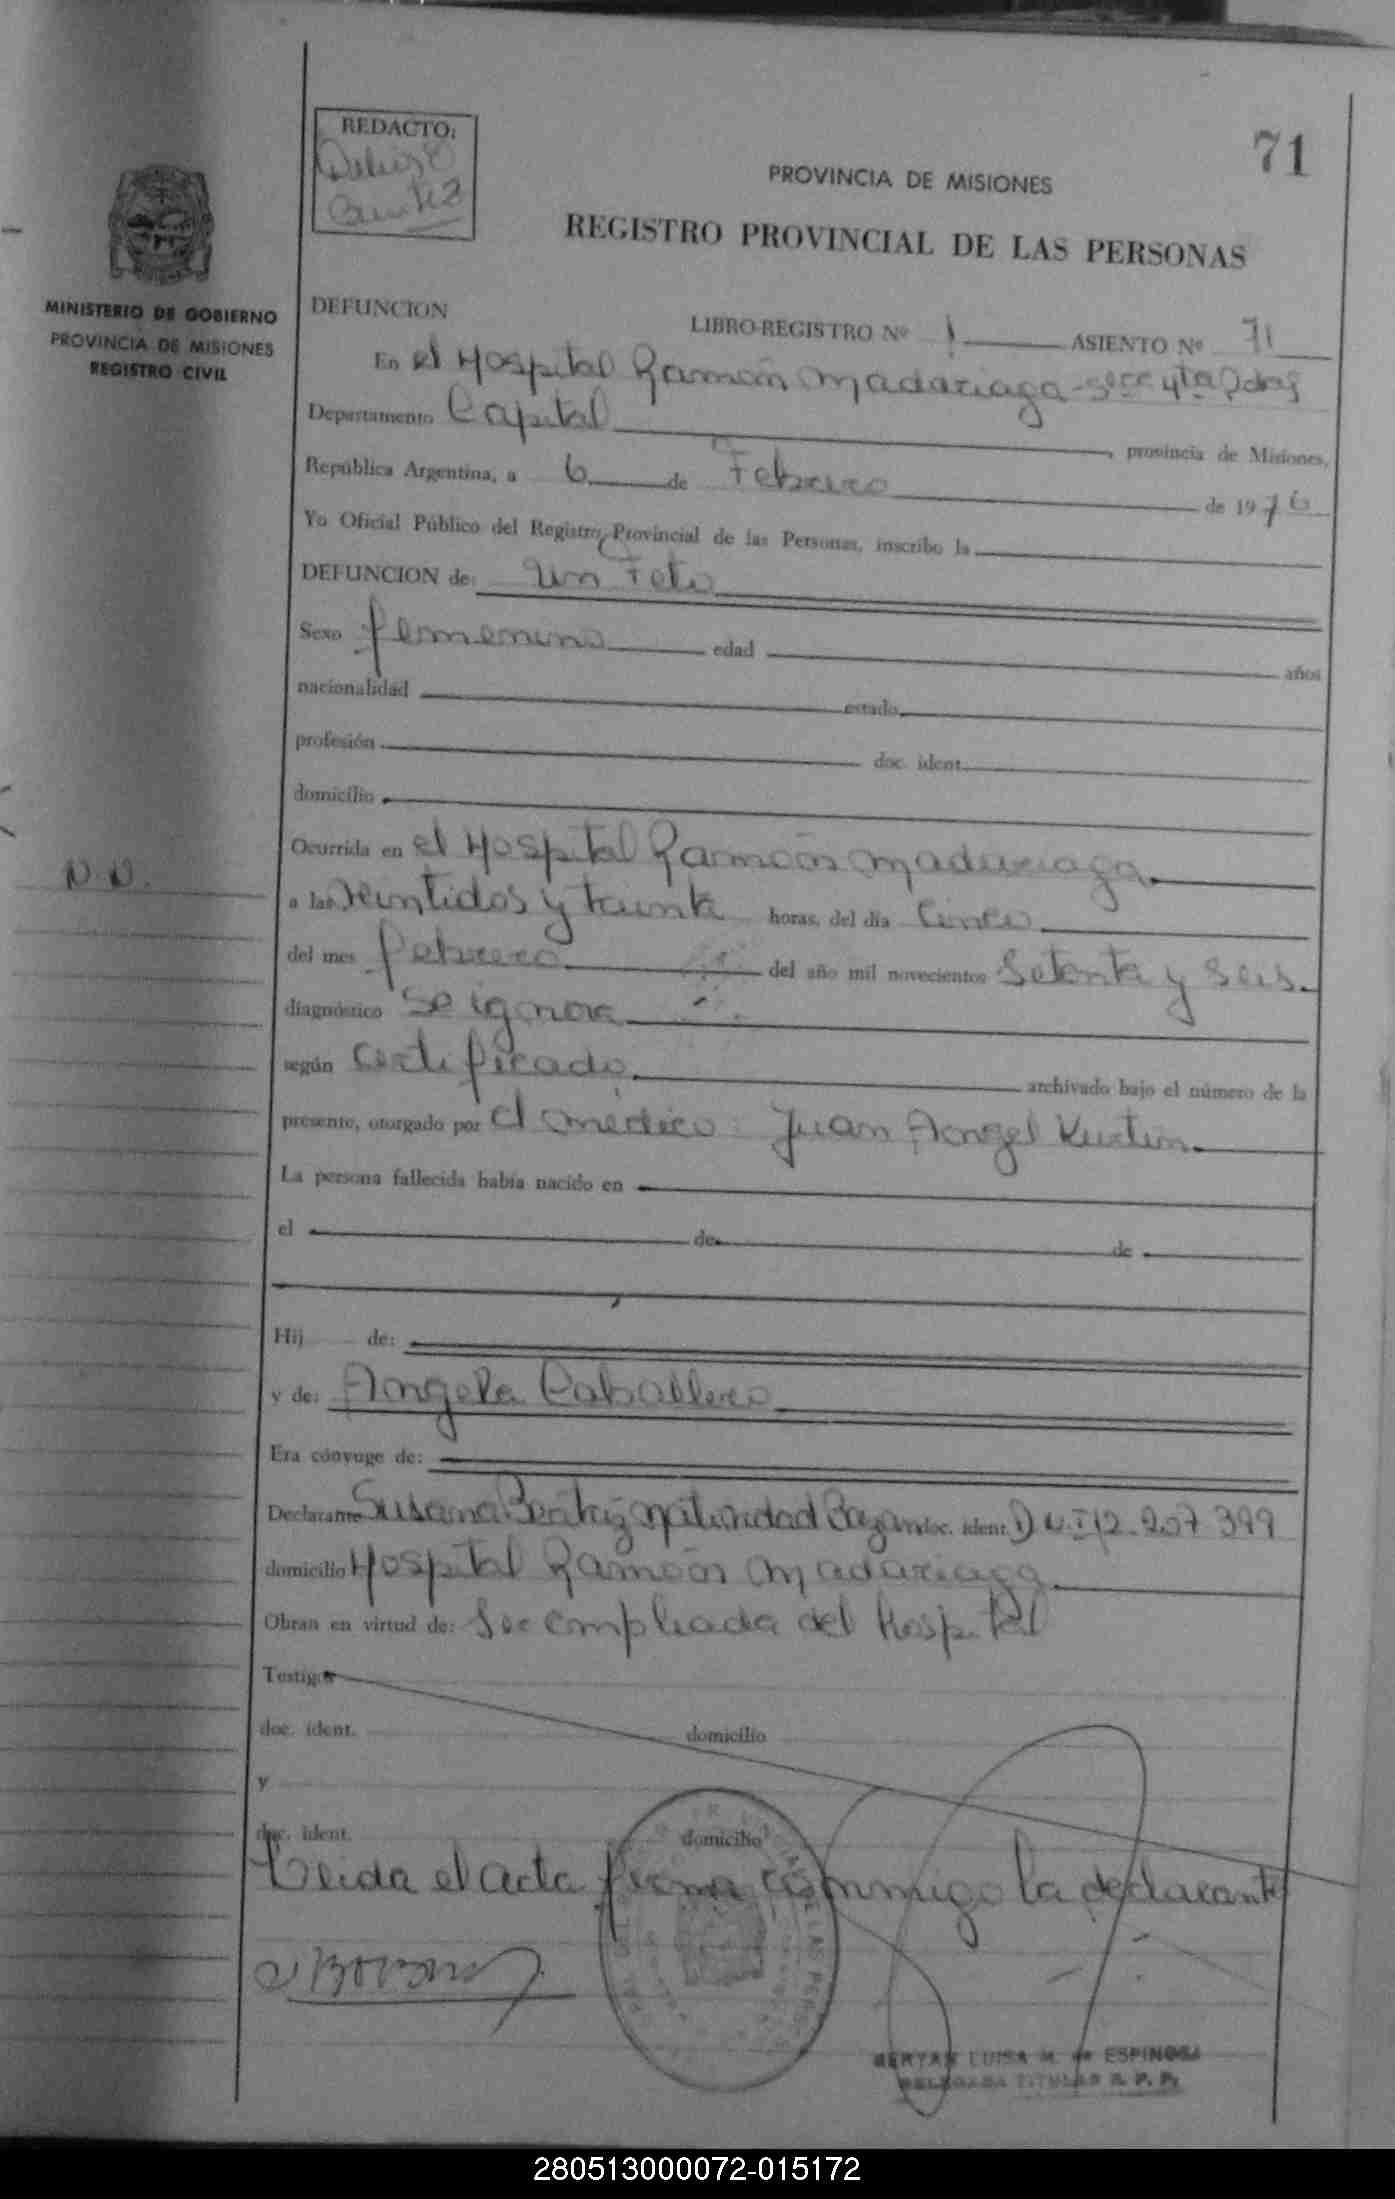 71
REDACTO:
PROVINCIA DE MISIONES
REGISTRO PROVINCIAL DE LAS PERSONAS
MINISTERIO DE GOBIERNO
PROVINCIA DE MISIONES
REGISTRO CIVIL
DEFUNCION
LIBRO-REGISTRO Nº 1 ASIENTO Nº 71
En el Hospital Ramón Madariaga - Secc 4ta Pdas
Departamento Capital, provincia de Misiones,
República Argentina, a 6 de Febrero de 1976
Yo Oficial Público del Registro Provincial de las Personas, inscribo la
DEFUNCION de: Un Feto
Sexo femenino edad años
nacionalidad estado
profesión doc. ident.
domicilio
Ocurrida en el Hospital Ramón Madariaga
N.N.
a las veintidos y treinta horas, del día Cinco
del mes febrero del año mil novecientos Setenta y Seis.
diagnóstico Se ignora
según Certificado archivado bajo el número de la
presente, otorgado por el médico: Juan Angel
La persona fallecida había nacido en
el de de
Hij de:
y de: Angela Caballero
Era cónyuge de:
Declarante Susana Beatriz Natividad Bazan doc. ident. D.N.I 12.207.399
domicilio Hospital Ramón Madariaga
Obran en virtud de: Ser empleada del hospital
Testigos
doc. ident. domicilio
y
doc. ident. domicilio
Leida el acta firma conmigo la declarante
LUISA M. de ESPINOSA
DELEGADA TITULAR R. P. P.
280513000072-015172